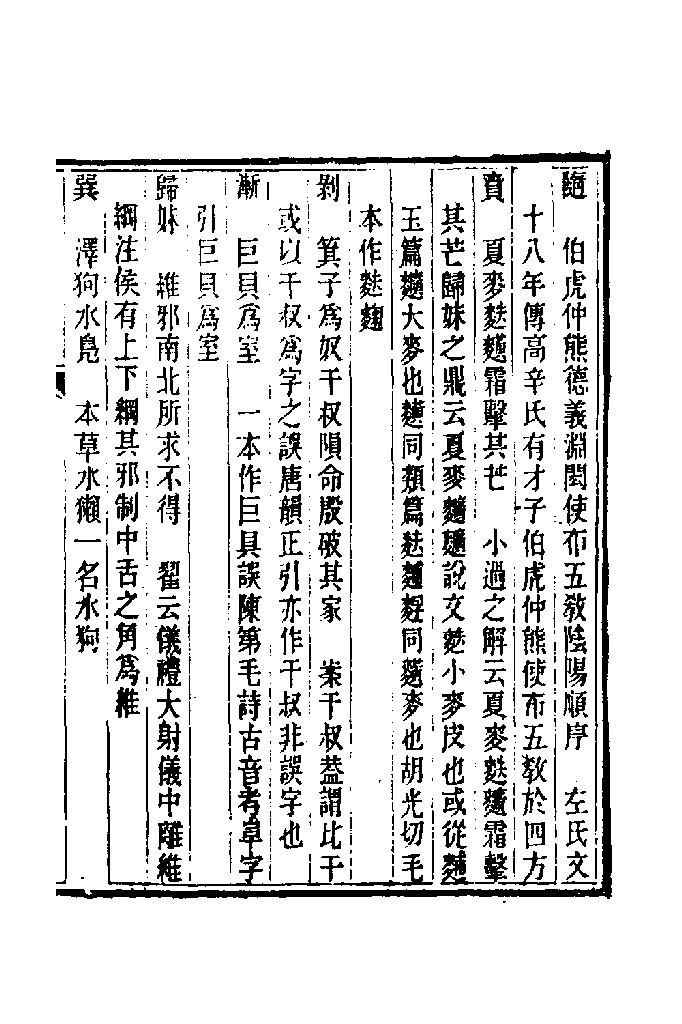 隨　伯虎仲熊德義淵閎使布五敎陰陽順序　左氏文
十八年傳高辛氏有才子伯虎仲熊使布五敎於四方
賁　夏麥麩䵃霜擊其芒　小過之解云夏麥麩䵃霜擊
其芒歸妹之鼎云夏麥䵃䵃說文麩小麥皮也或從麱
玉篇䵃大麥也同類篇麩麱麪同䵃麥也胡光切毛
本作麩麹
剝　箕子爲奴干叔隕命殷破其家　案干叔葢謂比干
或以干叔爲字之誤唐韻正引亦作干叔非誤字也
漸　巨貝爲室　一本作巨具誤陳第毛詩古音考皐字
引巨貝爲室
歸妹　維邪南北所求不得　翟云儀禮大射儀中離維
綱注侯有上下綱其邪制中舌之角爲維
巽　澤狗水鳧　本草水獺一名水狗